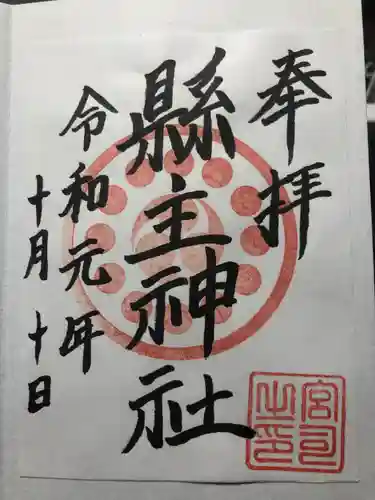 奉拝
縣主神社
令和元年
十月十日
宮司之印